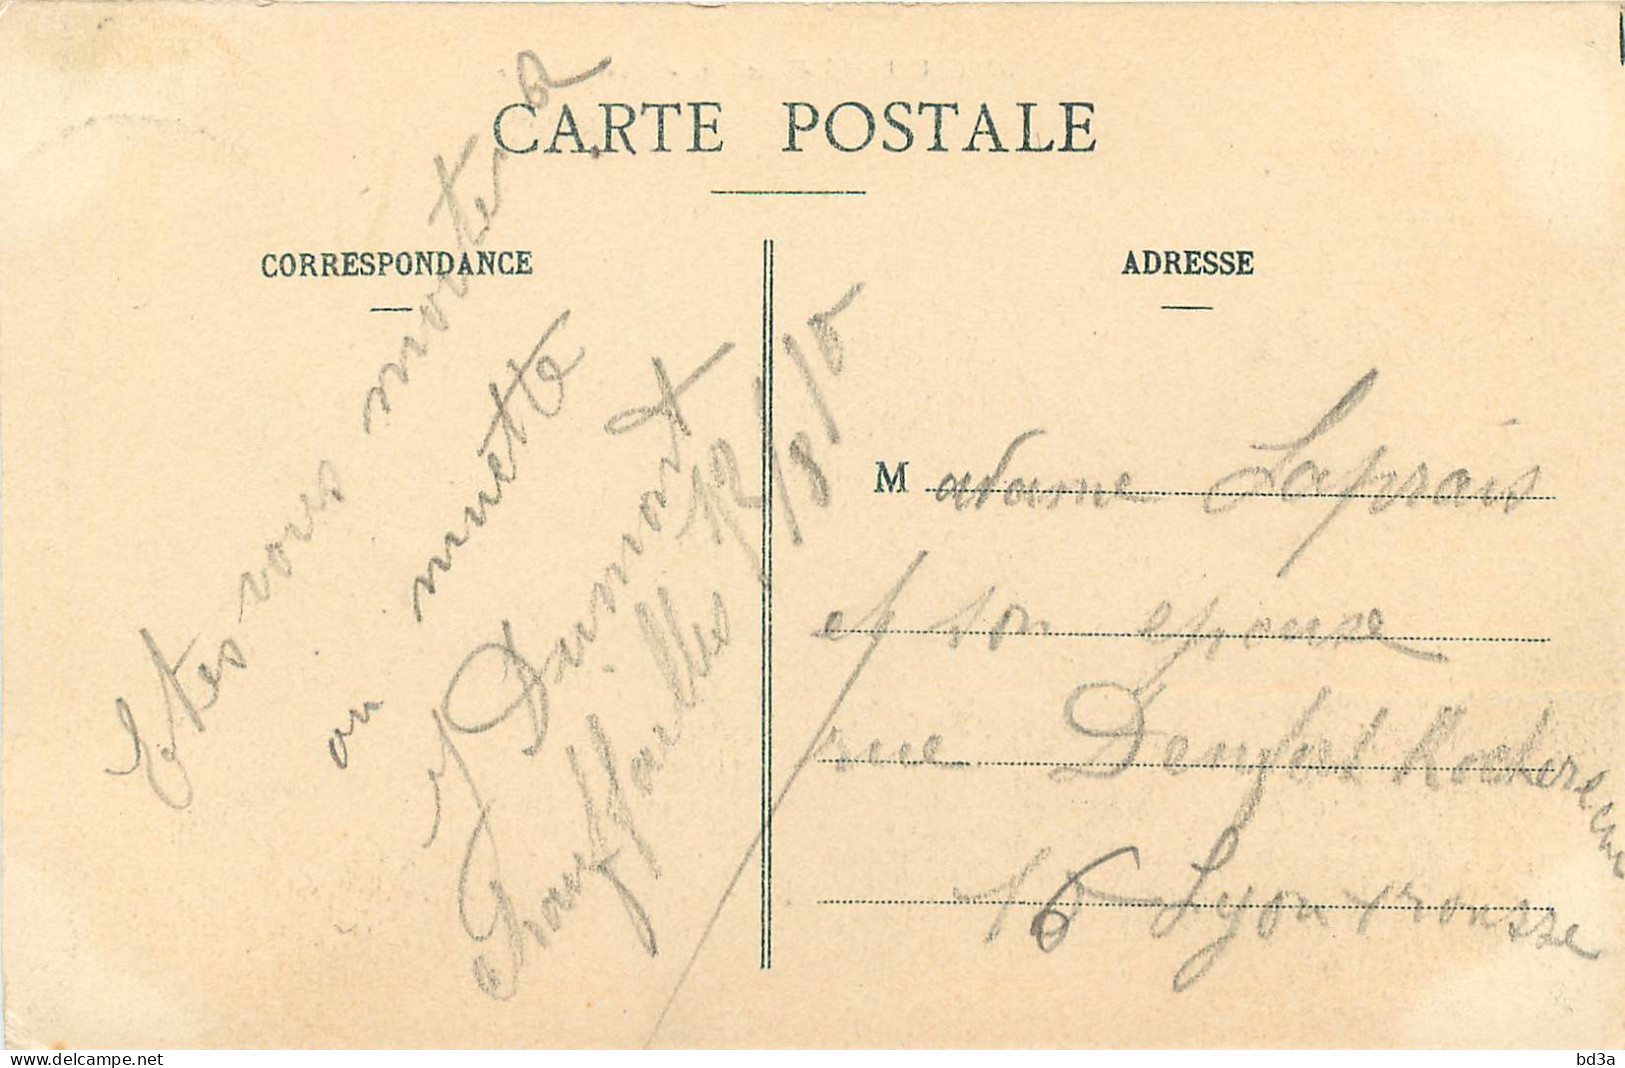 CARTE POSTALE
CORRESPONDANCE
Etes vous monter a
ou muette
Dumont
Chauffailles 12/8/05
ADRESSE
Madame Laprais
et son epouse
rue Denfert Rochereau
16 Lyon xrousse
delcampe.net
bd3a